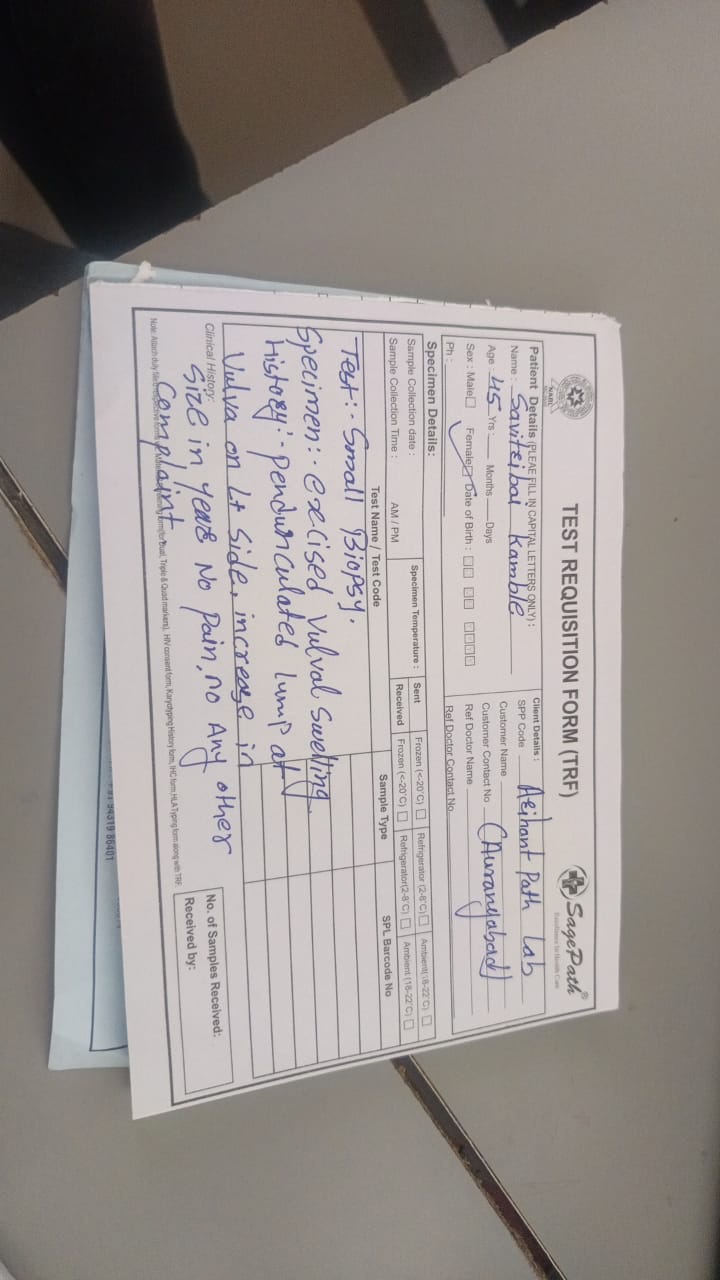 TEST REQUISITION FORM (TRF)
NABL
SagePath®
Excellence In Health Care
Patient Details (PLEAE FILL IN CAPITAL LETTERS ONLY) :
Name : Savitribai Kamble
Age : 45 Yrs Months Days
Sex : Male Female Date of Birth :
Ph :
Client Details :
SPP Code Arihant Path Lab
Customer Name
Customer Contact No (Aurangabad)
Ref Doctor Name
Ref Doctor Contact No.
Specimen Details:
Sample Collection date :
Sample Collection Time : AM / PM
Specimen Temperature :
Sent Frozen (<-20°C) Refrigerator (2-8°C) Ambient(18-22°C)
Received Frozen (<-20°C) Refrigerator(2-8°C) Ambient (18-22°C)
Test Name / Test Code Sample Type SPL Barcode No
Test:- Small Biopsy.
Specimen:- excised Vulval Swelling.
History:- pendunculated lump at
Vulva on Lt side, increase in
Clinical History:
Size in years No Pain, no Any other
Complaint
No. of Samples Received:
Received by:
Note: Attach duly filled HIV consent form, Karyotyping History form, IHC form HLA Typing form along with TRF.
94319 86401